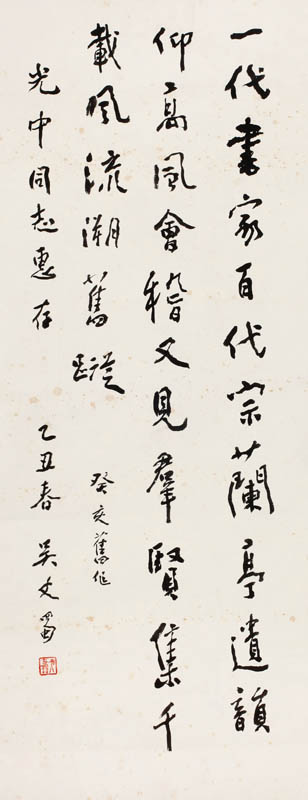 一代書家百代宗蘭亭遺韻
仰高風會稽又見羣賢集千
載風流溯舊蹤
癸亥舊作
光中同志惠存
乙丑春 吴丈蜀